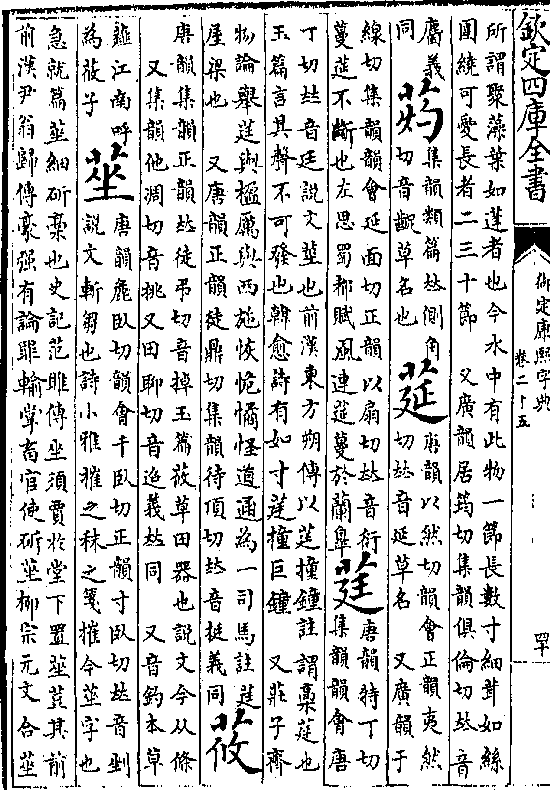 欽定四庫全書
御定康熙字典
卷二十五
四十
所謂聚藻葉如蓬者也今水中有此物一節長數寸細茸如絲
圓繞可愛長者二三十節 又廣韻居筠切集韻俱倫切𠀤音
麕義 集韻類篇𠀤側角 莚 唐韻以然切韻會正韻夷然
同 切音齪草名也 切𠀤音延草名 又廣韻于
線切集韻韻會延面切正韻以扇切𠀤音衍 莛 唐韻特丁切
蔓莚不斷也左思蜀都賦風連莚蔓於蘭皋 集韻韻會唐
丁切𠀤音廷說文莖也前漢東方朔傳以莛撞鐘註謂稾莛也
玉篇言其聲不可發也韓愈詩有如寸莛撞巨鐘 又莊子齊
物論舉莛與楹厲與西施恢恑憰怪道通為一司馬註莛
屋梁也 又唐韻正韻徒鼎切集韻待頂切𠀤音挺義同 莜
唐韻集韻正韻𠀤徒弔切音掉玉篇莜草田器也說文今从條
又集韻他凋切音挑又田聊切音迢義𠀤同 又音釣本草
薤江南呼 莝 唐韻麤臥切韻會千臥切正韻寸臥切𠀤音剉
為莜子 說文斬芻也詩小雅摧之秣之箋摧今莝字也
急就篇莝細斫稾也史記范雎傳坐須賈於堂下置莝荳其前
前漢尹翁歸傳豪强有論罪輸掌畜官使斫莝柳宗元文合莝